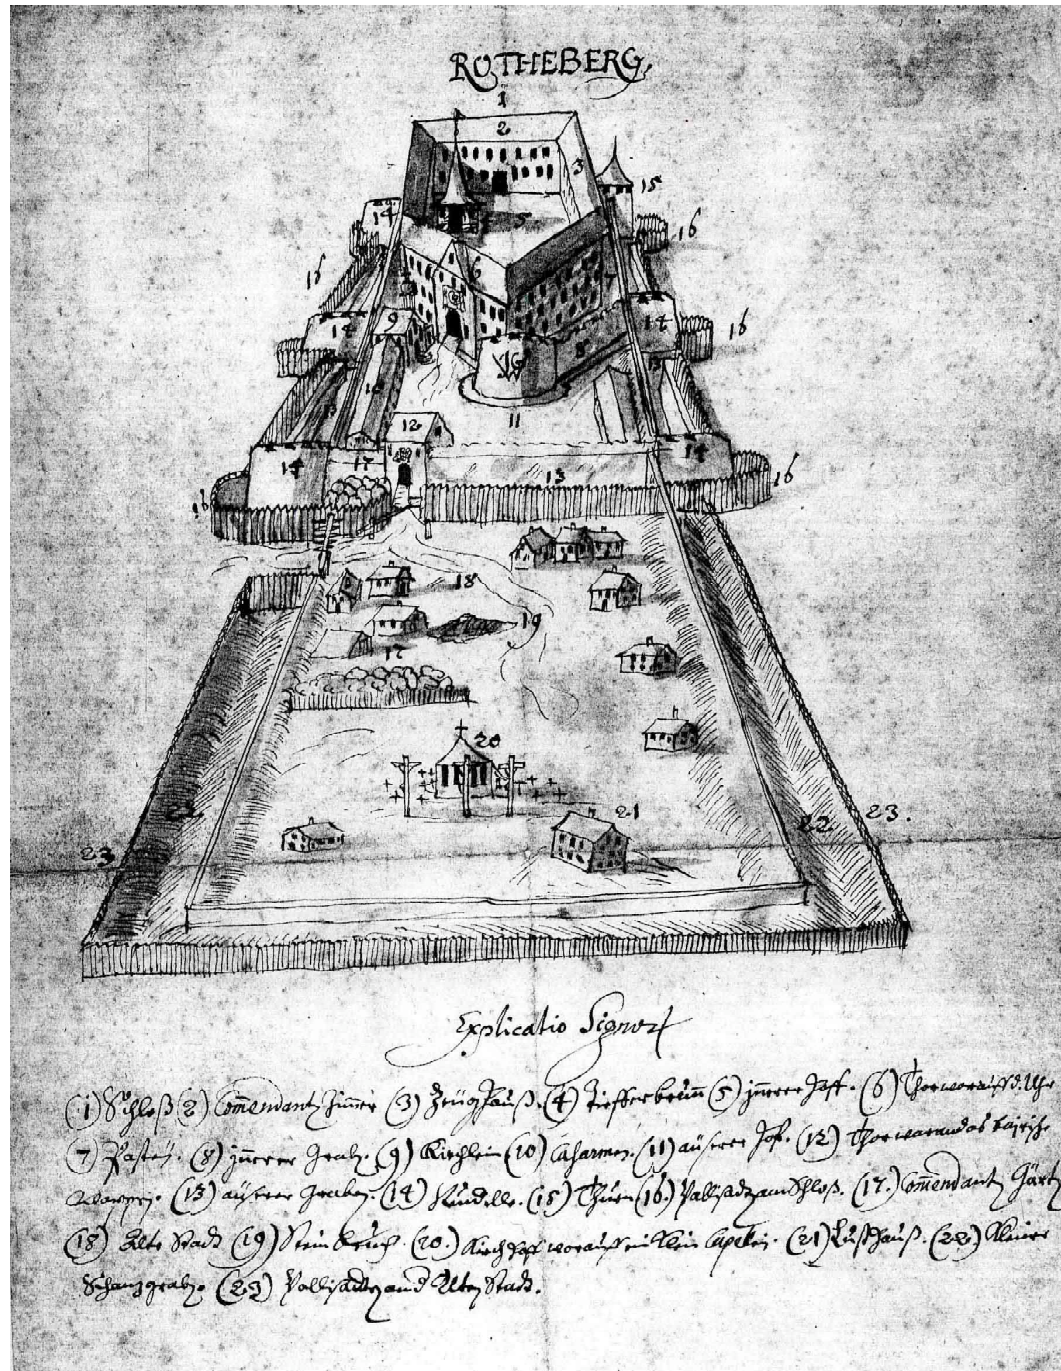 ROTHEBERG,
1
2
3
15
14
5.
16
6
16
7
14
14
16
9
8
10
13
13
11
12
14
14
17
13
16
16
18
19
17
20
21
22
22
23.
23
Explicatio Signor
(1) Schloß (2) Commendanty Zimer (3) Zeüghauß. (4) Tiefferbrunn (5) jnnerer Hoff. (6) Thor worauff d. Uhr
(7) Pasteÿ. (8) jnnerer Grabn. (9) Kirchlein (10) Casarmen. (11) aüserer Hof. (12) Thor waran das bairische
Wappen. (13) aüserer Graben. (14) Rundelle. (15) Thurn (16.) Pallisaden am Schloß. (17.) Commendanty Gärtn
(18) Alte Stadt (19) Steinbruch. (20.) Kirchhoff worauff ein klein Capeln. (21) Lusthauß. (22) Kleiner
Schanzgrabn. (23) Pallisaden and Alten Stadt.